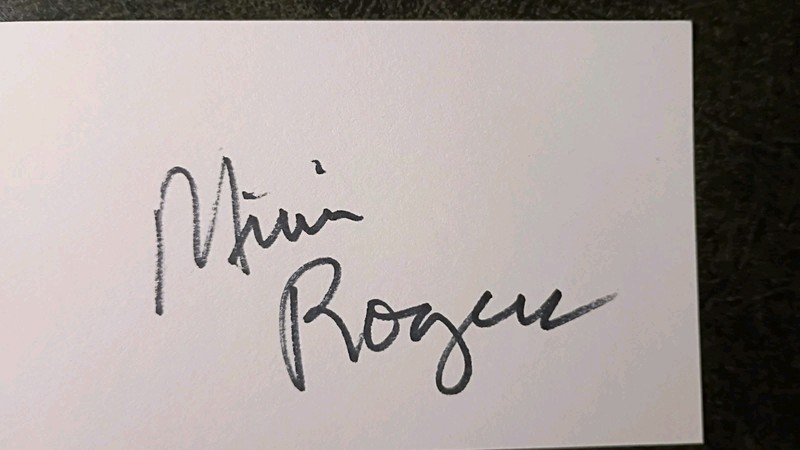 Mimi
Rogers